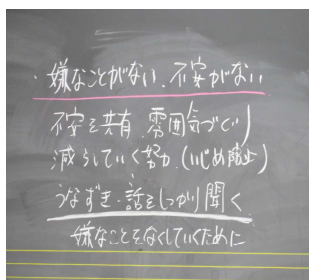 ・嫌なことがない、不安がない
不安を共有、雰囲気づくり
減らしていく努力、(いじめ防止)
うなずき・話をしっかり聞く
嫌なことをなくしていくために